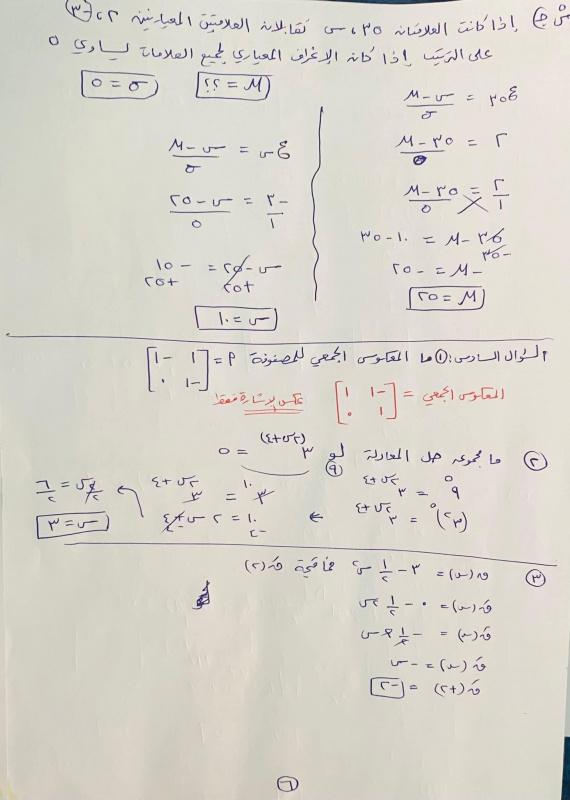 س ج) إذا كانت العلامتان ٣٥ ، س تقابلان العلامتين المعياريتين ٢ ، (-٣)
على الترتيب إذا كان الإنحراف المعياري لجميع العلامات يساوي ٥
M = ؟؟ σ = ٥
ع٣٥ = (س - M)/σ
٢ = (٣٥ - M)/٥
٢/١ = (٣٥ - M)/٥
٣٥ - M = ١٠ - ٣٥
-٣٥
-M = -٢٥
M = ٢٥
عس = (س - M)/σ
-٣/١ = (س - ٢٥)/٥
س - ٢٥ = -١٥
+٢٥ +٢٥
س = ١٠
السؤال السادس: ① ما المعكوس الجمعي للمصفوفة P = [١ -١ / -١ ٠]
المعكوس الجمعي = [-١ ١ / ١ ٠] عكس الإشارة فقط
② ما مجموعة حل المعادلة لو٩ ٣^(٢س+٤) = ٥
٩^٥ = ٣^(٢س+٤)
(٣^٢)^٥ = ٣^(٢س+٤) ←
٣^١٠ = ٣^(٢س+٤)
١٠ = ٢س + ٤
-٤ -٤
٢س/٢ = ٦/٢
س = ٣
③ ق(س) = ٣ - ١/٢ س² فما قيمة ق(٢)
ق(س) = ٠ - ١/٢ ٢س
ق(س) = - ١/٢ ٢س
ق(س) = -س
ق(+٢) = -٢
٦